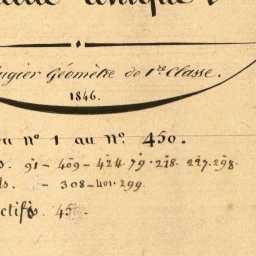 ugier Géomètre de 1re Classe.
1846.
u no 1 au no. 450.
s. 91 - 409 - 424. 79. 218. 227. 298.
ds. - 308 - 401. 299.
ctifs. 450.